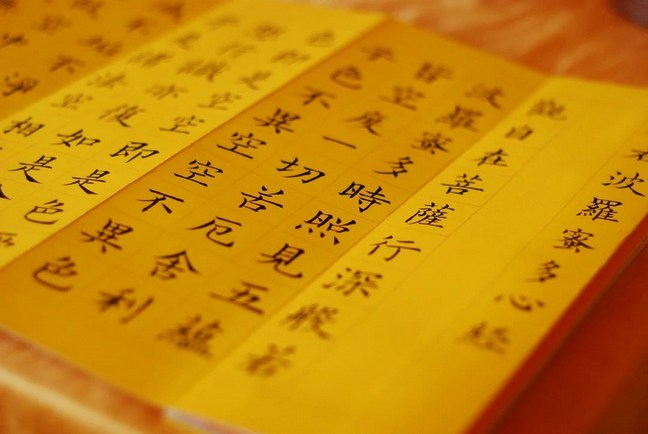 波羅蜜多心經
觀自在菩薩行深般若
波羅蜜多時照見五蘊
皆空度一切苦厄舍利
子色不異空空不異色
色即是空空即是色
想行識亦復如是
是諸法空相